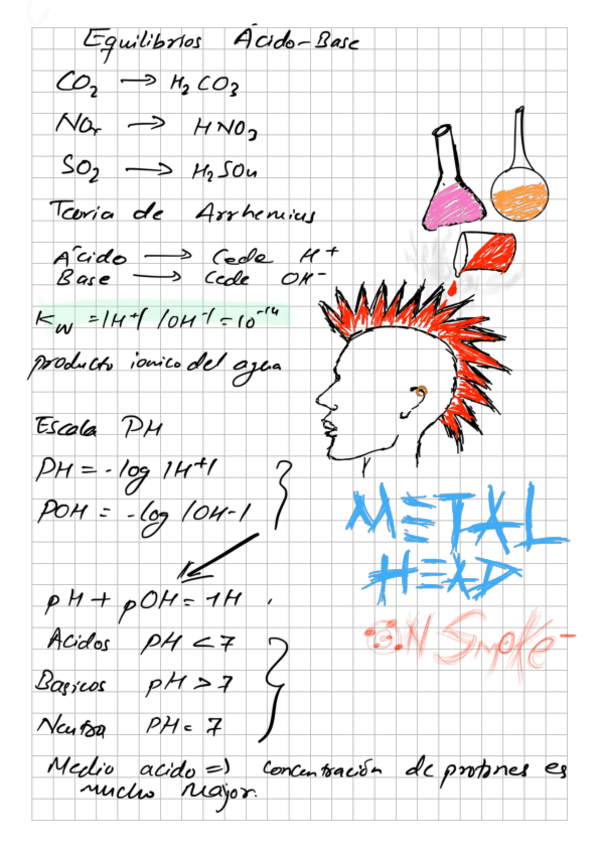 Equilibrios Ácido-Base
CO2 → H2CO3
NOr → HNO3
SO2 → H2SO4
Teoria de Arrhenius
Ácido → Cede H+
Base → Cede OH-
Kw = |H+| |OH-| = 10-14
producto ionico del agua
Escala PH
PH = -log |H+|
POH = -log |OH-|
pH + pOH = 14
Acidos pH < 7
Basicos pH > 7
Neutra PH = 7
Medio acido => concentración de protones es
mucho major.
METAL
HEAD
ON Smoke